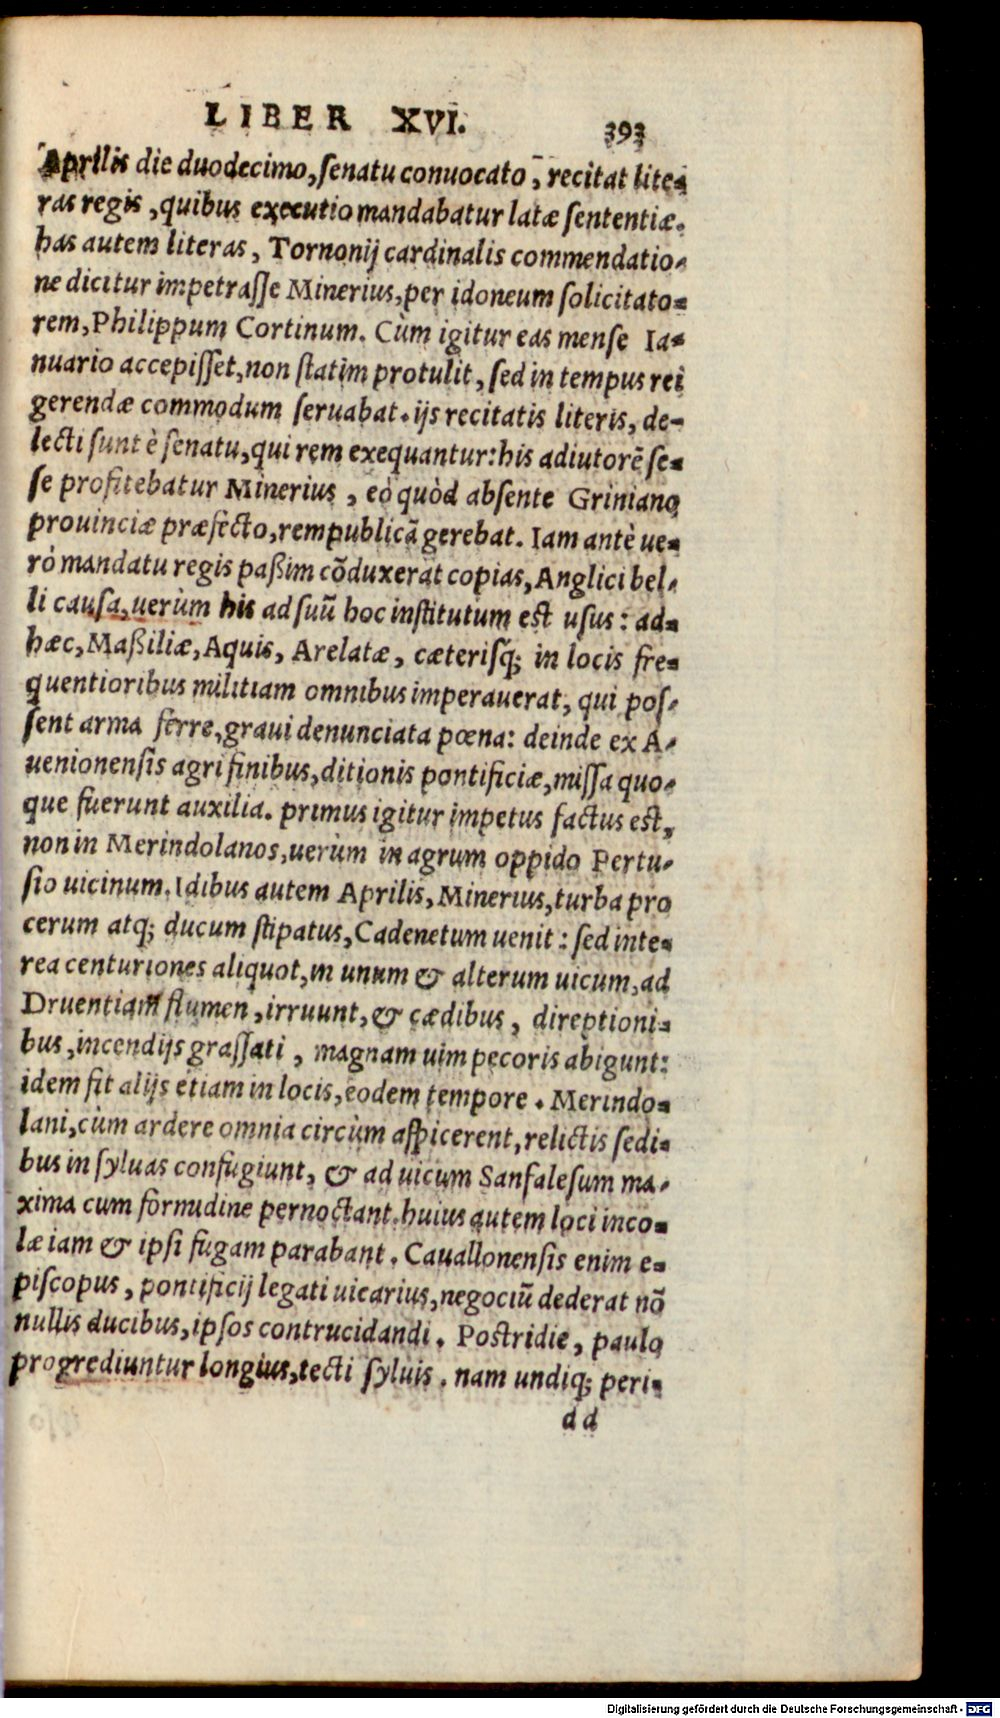 LIBER XVI. 393
Aprilis die duodecimo, ſenatu conuocato, recitat lite-
ras regis, quibus executio mandabatur latæ ſententiæ.
has autem literas, Tornonij cardinalis commendatio-
ne dicitur impetraſſe Minerius, per idoneum ſolicitato-
rem, Philippum Cortinum. Cùm igitur eas menſe Ia-
nuario accepiſſet, non ſtatim protulit, ſed in tempus rei
gerendæ commodum ſeruabat. ijs recitatis literis, de-
lecti ſunt è ſenatu, qui rem exequantur: his adiutorē ſe-
ſe profitebatur Minerius, eò quòd abſente Griniano
prouinciæ præfecto, rempublicā gerebat. Iam antè ue-
rò mandatu regis paßim cōduxerat copias, Anglici bel-
li cauſa, uerùm his ad ſuū hoc inſtitutum eſt uſus: ad-
hæc, Maßiliæ, Aquis, Arelatæ, cæteriſq; in locis fre-
quentioribus militiam omnibus imperauerat, qui poſ-
ſent arma ferre, graui denunciata pœna: deinde ex A-
uenionenſis agri finibus, ditionis pontificiæ, miſſa quo-
que fuerunt auxilia. primus igitur impetus factus eſt,
non in Merindolanos, uerùm in agrum oppido Pertu-
ſio uicinum. Idibus autem Aprilis, Minerius, turba pro
cerum atq; ducum ſtipatus, Cadenetum uenit: ſed inte-
rea centuriones aliquot, in unum & alterum uicum, ad
Druentiam flumen, irruunt, & cædibus, direptioni-
bus, incendijs graſſati, magnam uim pecoris abigunt:
idem fit alijs etiam in locis, eodem tempore. Merindo-
lani, cùm ardere omnia circùm aſpicerent, relictis ſedi-
bus in ſyluas confugiunt, & ad uicum Sanfaleſum ma-
xima cum formidine pernoctant. huius autem loci inco-
læ iam & ipſi fugam parabant. Cauallonenſis enim e-
piſcopus, pontificij legati uicarius, negociū dederat nō
nullis ducibus, ipſos contrucidandi. Poſtridie, paulo
progrediuntur longius, tecti ſyluis. nam undiq; peri-
d d
Digitalisierung gefördert durch die Deutsche Forschungsgemeinschaft - DFG